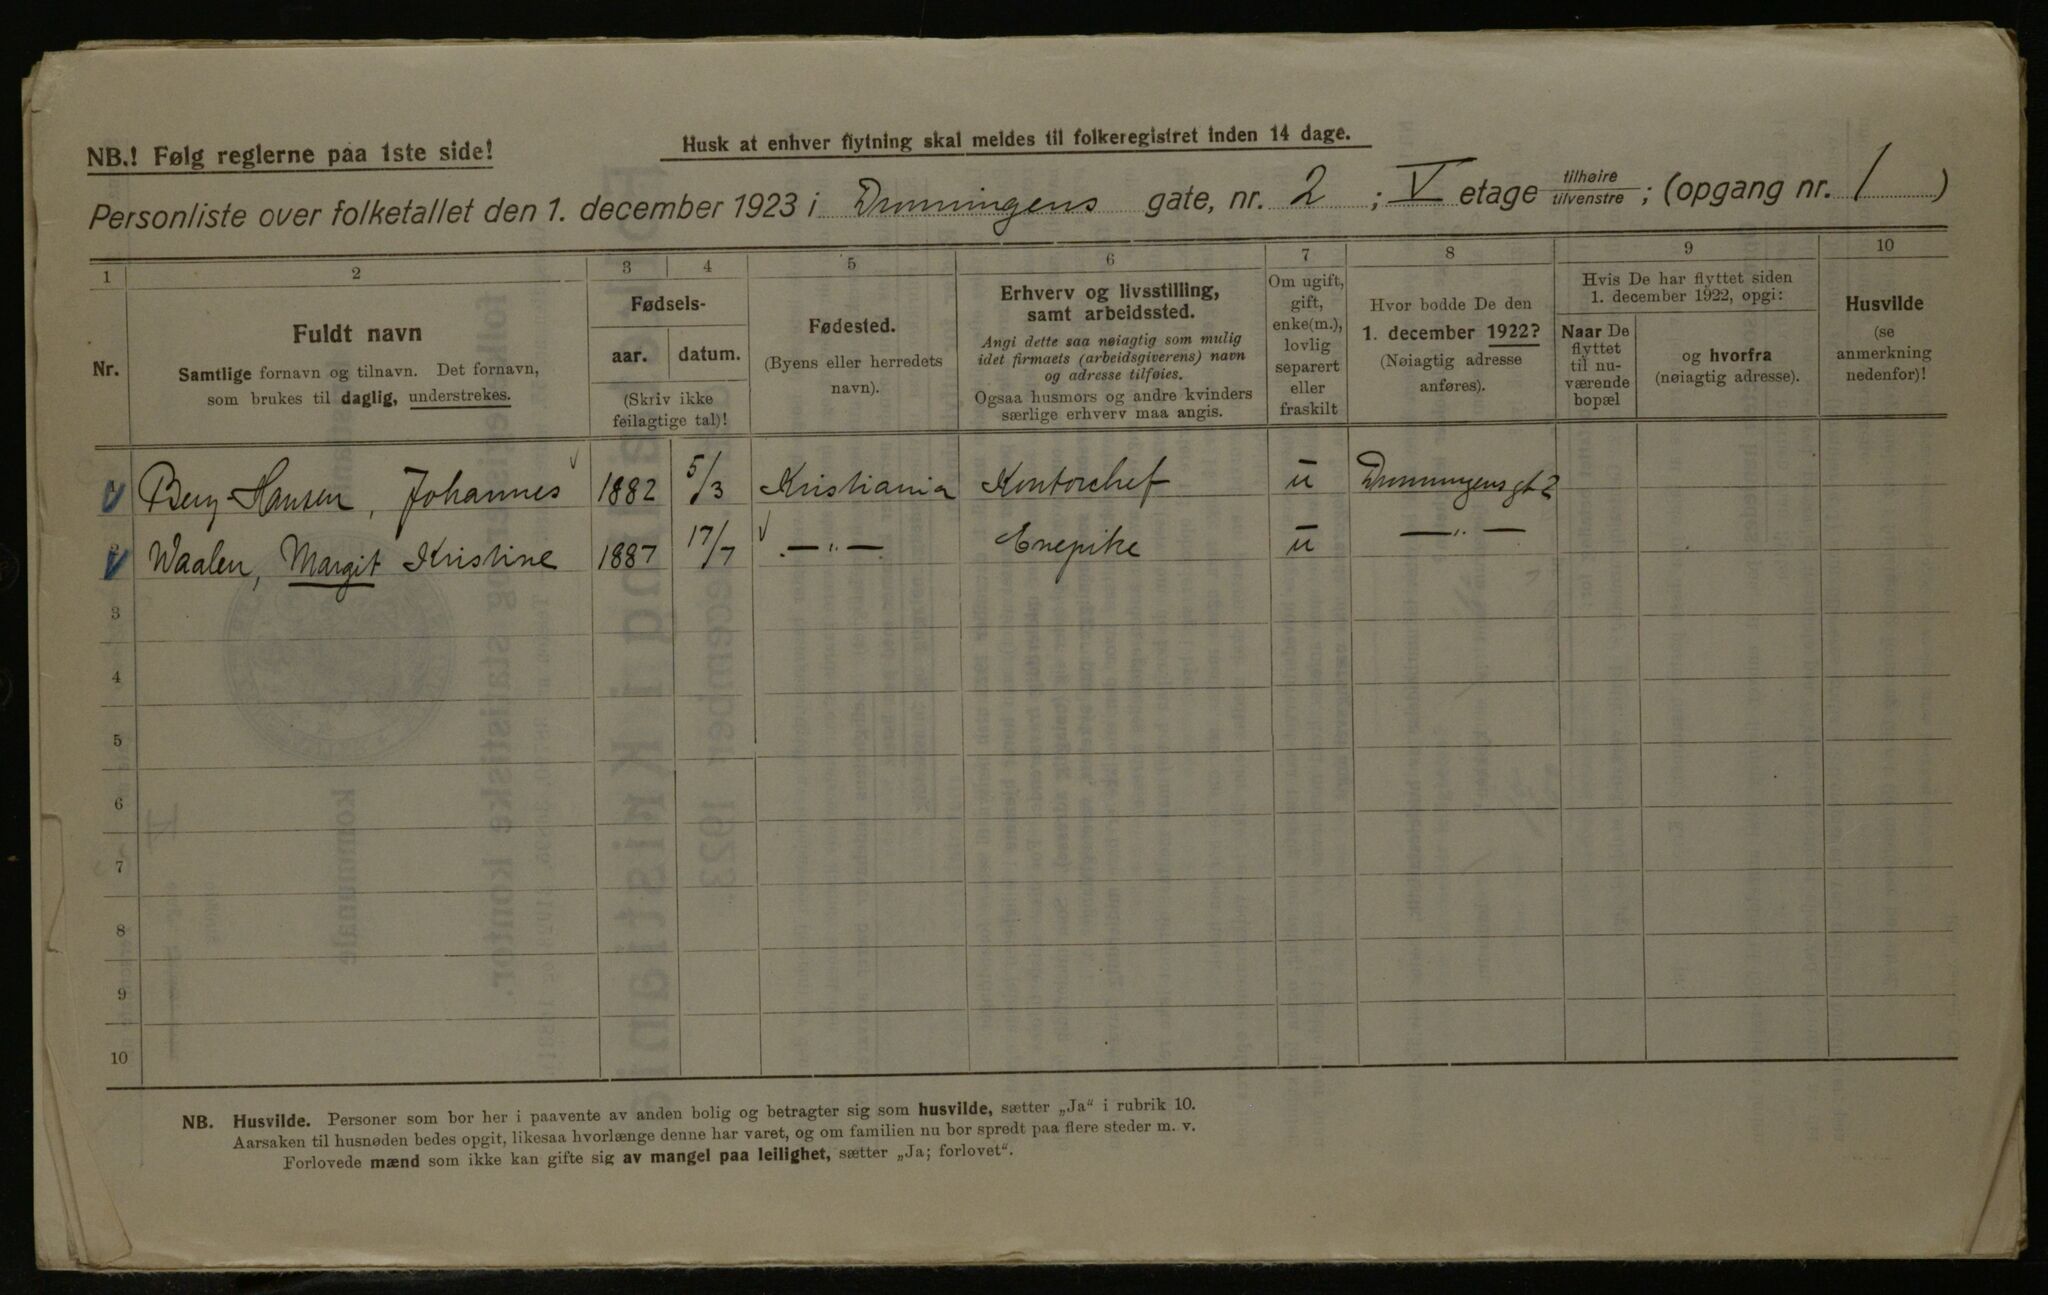 NB.! Følg reglerne paa 1ste side!
Husk at enhver flytning skal meldes til folkeregistret inden 14 dage.
Personliste over folketallet den 1. december 1923 i Dronningens gate, nr. 2 ; V etage tilhøire tilvenstre ; (opgang nr. 1 )
1 2 3 4 5 6 7 8 9 10
Nr.
Fuldt navn
Samtlige fornavn og tilnavn. Det fornavn,
som brukes til daglig, understrekes.
Fødsels-
aar. datum.
(Skriv ikke
feilagtige tal)!
Fødested.
(Byens eller herredets
navn).
Erhverv og livsstilling,
samt arbeidssted.
Angi dette saa nøiagtig som mulig
idet firmaets (arbeidsgiverens) navn
og adresse tilføies.
Ogsaa husmors og andre kvinders
særlige erhverv maa angis.
Om ugift,
gift,
enke(m.),
lovlig
separert
eller
fraskilt
Hvor bodde De den
1. december 1922?
(Nøiagtig adresse
anføres).
Hvis De har flyttet siden
1. december 1922, opgi:
Naar De
flyttet
til nu-
værende
bopæl
og hvorfra
(nøiagtig adresse).
Husvilde
(se
anmerkning
nedenfor)!
Berg-Hansen, Johannes 1882 5/3 Kristiania Kontorchef u Dronningensgt 2
Waalen, Margit Kristine 1887 17/7 — „ — Enepike u — „ —
3
4
5
6
7
8
9
10
NB. Husvilde. Personer som bor her i paavente av anden bolig og betragter sig som husvilde, sætter „Ja“ i rubrik 10.
Aarsaken til husnøden bedes opgit, likesaa hvorlænge denne har varet, og om familien nu bor spredt paa flere steder m. v.
Forlovede mænd som ikke kan gifte sig av mangel paa leilighet, sætter „Ja; forlovet“.